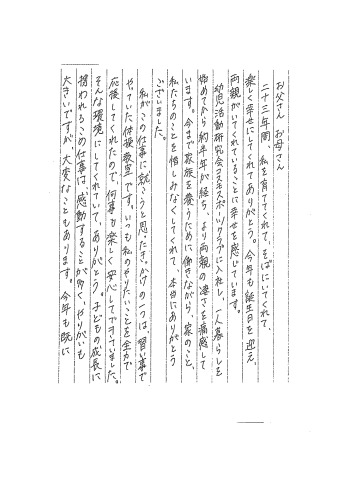 お父さん お母さん
二十三年間、私を育ててくれて、そばにいてくれて、
楽しく幸せにしてくれてありがとう。今年も誕生日を迎え、
両親がいてくれていることに幸せを感じています。
幼児活動研究会コスモスポーツクラブに入社し、一人暮らしを
始めてから約半年が経ち、より両親の凄さを痛感して
います。今まで家族を養うために働きながら、家のこと、
私たちのことを惜しみなくしてくれて、本当にありがとう
ございました。
私がこの仕事に就こうと思ったきっかけの一つは、習い事で
やっていた体操教室です。いつも私のやりたいことを全力で
応援してくれたので、何事も楽しく安心してできていました。
そんな環境にしてくれていて、ありがとう。子どもの成長に
携われるこの仕事は、感動することが多く、やりがいも
大きいですが、大変なこともあります。今年も既に